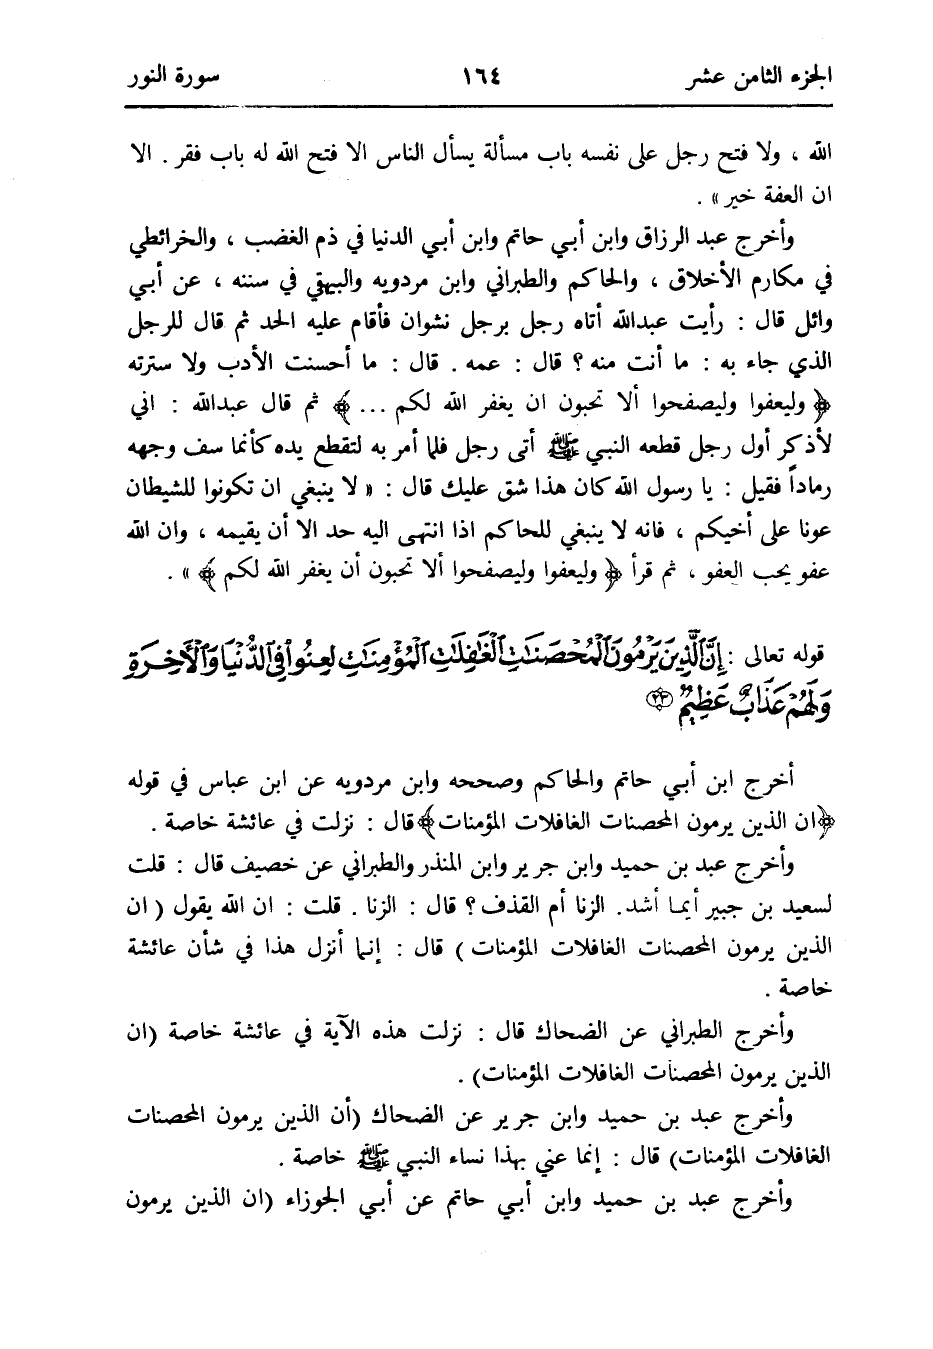 الجزء الثامن عشر ١٦٤ سورة النور
الله ، ولا فتح رجل على نفسه باب مسألة يسأل الناس الا فتح الله له باب فقر . الا
ان العفة خير » .
وأخرج عبد الرزاق وابن أبي حاتم وابن أبي الدنيا في ذم الغضب ، والخرائطي
في مكارم الأخلاق ، والحاكم والطبراني وابن مردويه والبيهقي في سننه ، عن أبي
وائل قال : رأيت عبدالله أتاه رجل برجل نشوان فأقام عليه الحد ثم قال للرجل
الذي جاء به : ما أنت منه ؟ قال : عمه . قال : ما أحسنت الأدب ولا سترته
﴿ وليعفوا وليصفحوا ألا تحبون ان يغفر الله لكم ... ﴾ ثم قال عبدالله : اني
لأذكر أول رجل قطعه النبي ﷺ أتى رجل فلما أمر به لتقطع يده كأنما سف وجهه
رماداً فقيل : يا رسول الله كان هذا شق عليك قال : « لا ينبغي ان تكونوا للشيطان
عونا على أخيكم ، فانه لا ينبغي للحاكم اذا انتهى اليه حد الا أن يقيمه ، وان الله
عفو يحب العفو ، ثم قرأ ﴿ وليعفوا وليصفحوا ألا تحبون أن يغفر الله لكم ﴾ » .
قوله تعالى : إِنَّ الَّذِينَ يَرْمُونَ الْمُحْصَنَاتِ الْغَافِلَاتِ الْمُؤْمِنَاتِ لُعِنُوا فِي الدُّنْيَا وَالْآخِرَةِ
وَلَهُمْ عَذَابٌ عَظِيمٌ ٢٣
أخرج ابن أبي حاتم والحاكم وصححه وابن مردويه عن ابن عباس في قوله
﴿ان الذين يرمون المحصنات الغافلات المؤمنات﴾ قال : نزلت في عائشة خاصة .
وأخرج عبد بن حميد وابن جرير وابن المنذر والطبراني عن خصيف قال : قلت
لسعيد بن جبير أيما أشد. الزنا أم القذف ؟ قال : الزنا . قلت : ان الله يقول ( ان
الذين يرمون المحصنات الغافلات المؤمنات ) قال : إنما أنزل هذا في شأن عائشة
خاصة .
وأخرج الطبراني عن الضحاك قال : نزلت هذه الآية في عائشة خاصة (ان
الذين يرمون المحصنات الغافلات المؤمنات) .
وأخرج عبد بن حميد وابن جرير عن الضحاك (أن الذين يرمون المحصنات
الغافلات المؤمنات) قال : إنما عني بهذا نساء النبي ﷺ خاصة .
وأخرج عبد بن حميد وابن أبي حاتم عن أبي الجوزاء (ان الذين يرمون